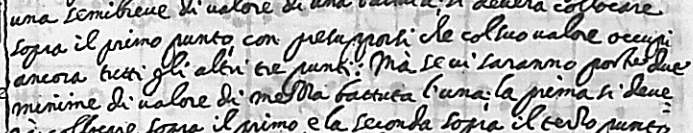 una semibreve di valore di una battuta si deverà collocare
sopra il primo punto, con presupporsi che col suo valore occupi
ancora tutti gli altri tre punti. Mà se vi saranno poste due
minime di valore di mezza battuta l'una: la prima si deve=
rà collocare sopra il primo e la seconda sopra il terzo punto